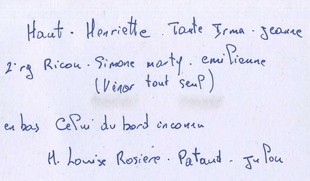 Haut - Henriette. Tante Irma - Jeanne
2e rg Ricou - Simone Marty - emilienne
(Vénor tout seul)
en bas Celui du bord inconnu
M. Louise Rosière - Pataud - Julou